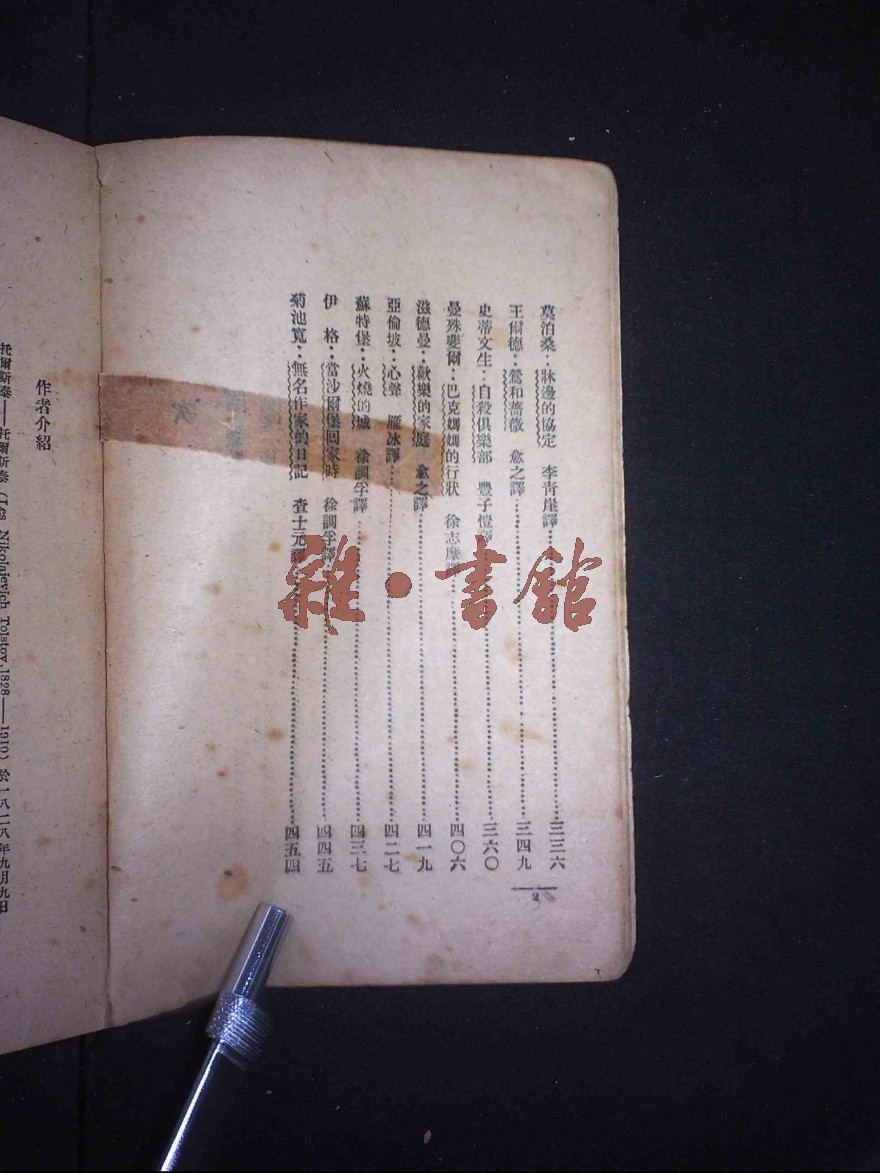 莫泊桑：牀邊的協定　李青崖譯……三三六
王爾德：鶯和薔薇　愈之譯……三四九
史蒂文生：自殺俱樂部　豐子愷譯……三六〇
曼殊斐爾：巴克媽媽的行狀　徐志摩譯……四〇六
滋德曼：歡樂的家庭　愈之譯……四一九
亞倫坡：心聲　雁冰譯……四二七
蘇特堡：火燒的城　徐調孚譯……四三七
伊　格：當沙爾堡回家時　徐調孚譯……四四五
菊池寬：無名作家的日記　查士元譯……四五四
2
雜·書館
作者介紹
托爾斯泰——托爾斯泰（Leo Nikolajevich Tolstoy, 1828——1910）於一八二八年九月九日